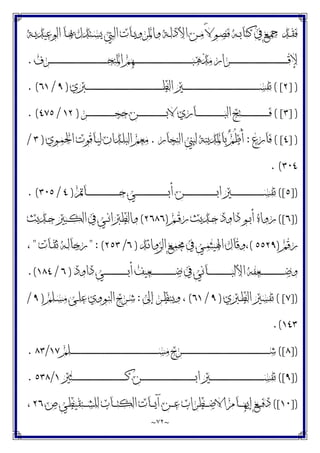 فقد جمع في كتابه فصولاً من الأدلة والمرويات التي يستدل بها الوعيدية
لإقرار مذهبهم المنحرف .
( [2]) تفسير الطبري ( 9 / 61 ) .
( [3]) فتح الباري لابن حجر ( 12 / 475 )
( [4]) فارع : أطم بالمدينة لبني النجار . معجم البلدان لياقوت الحموي ( 3 /
304 .
([5]) تفسير ابن أبي حاتم ( 4 / 305 ) .
([6]) رواه أبو داود حديث رقم ( 2686) والطبراني في الكبير حديث
رقم ( 5529 ) ، وقال الهيثمي في مجمع الزوائد ( 6 / 253 ) : " رجاله ثقات " ،
وضعفه الألباني في ضعيف أبي داود ( 6 / 184 ) .
([7]) تفسير الطبري ( 9 / 61 ) ، وينظر إلى : شرح النووي على مسلم ( 9 /
143 ) .
([8]) شرح مسلم 17/ 83 .
([9]) تفسير ابن كثير 1/ 538 .
([10]) دفع إيهام الاضطراب عن آيات الكتاب للشنقيطي ص 26 ،
~72~